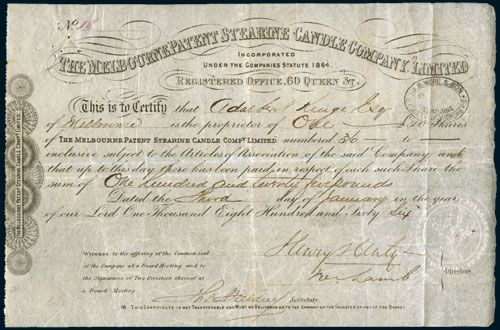 No. 16
THE MELBOURNE PATENT STEARINE CANDLE COMPANY LIMITED
INCORPORATED
UNDER THE COMPANIES STATUTE 1864.
REGISTERED OFFICE, 60 QUEEN ST.
This is to Certify that Esqr
of Melbourne is the proprietor of One £500 Shares
of THE MELBOURNE PATENT STEARINE CANDLE COMPY. LIMITED numbered 36 to
inclusive subject to the Articles of Association of the said Company and
that up to this day there has been paid in respect of each such Share the
sum of One hundred and twenty five pounds
Dated the Third day of January in the year
of our Lord One Thousand Eight Hundred and Sixty Six
WITNESS to the affixing of the Common Seal
of the Company at a Board Meeting and to
the Signatures of Two Directors thereof at
a Board Meeting
Directors.
Secretary.
NB. THIS CERTIFICATE IS NOT TRANSFERABLE AND MUST BE DELIVERED UP TO THE COMPANY ON THE TRANSFER OF ANY OF THE SHARES.
THE MELBOURNE PATENT STEARINE CANDLE COMPANY LIMITED